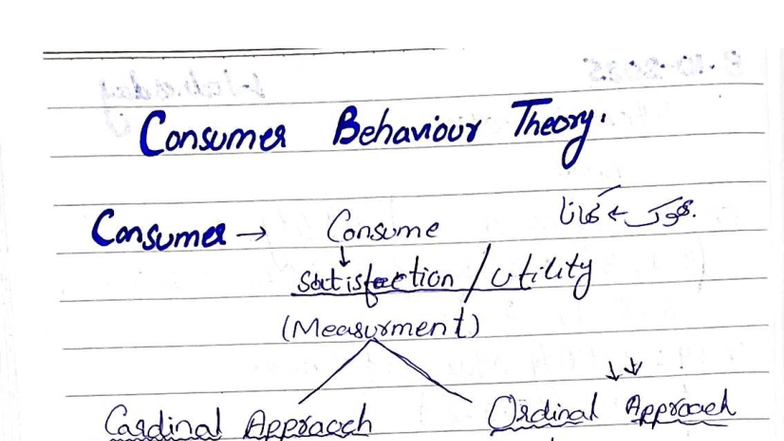 Consumer Behaviour Theory.
Consumer → Consume بھوک → کھانا
↓
Satisfaction / Utility
(Measurment)
Cardinal Approach Ordinal Approach